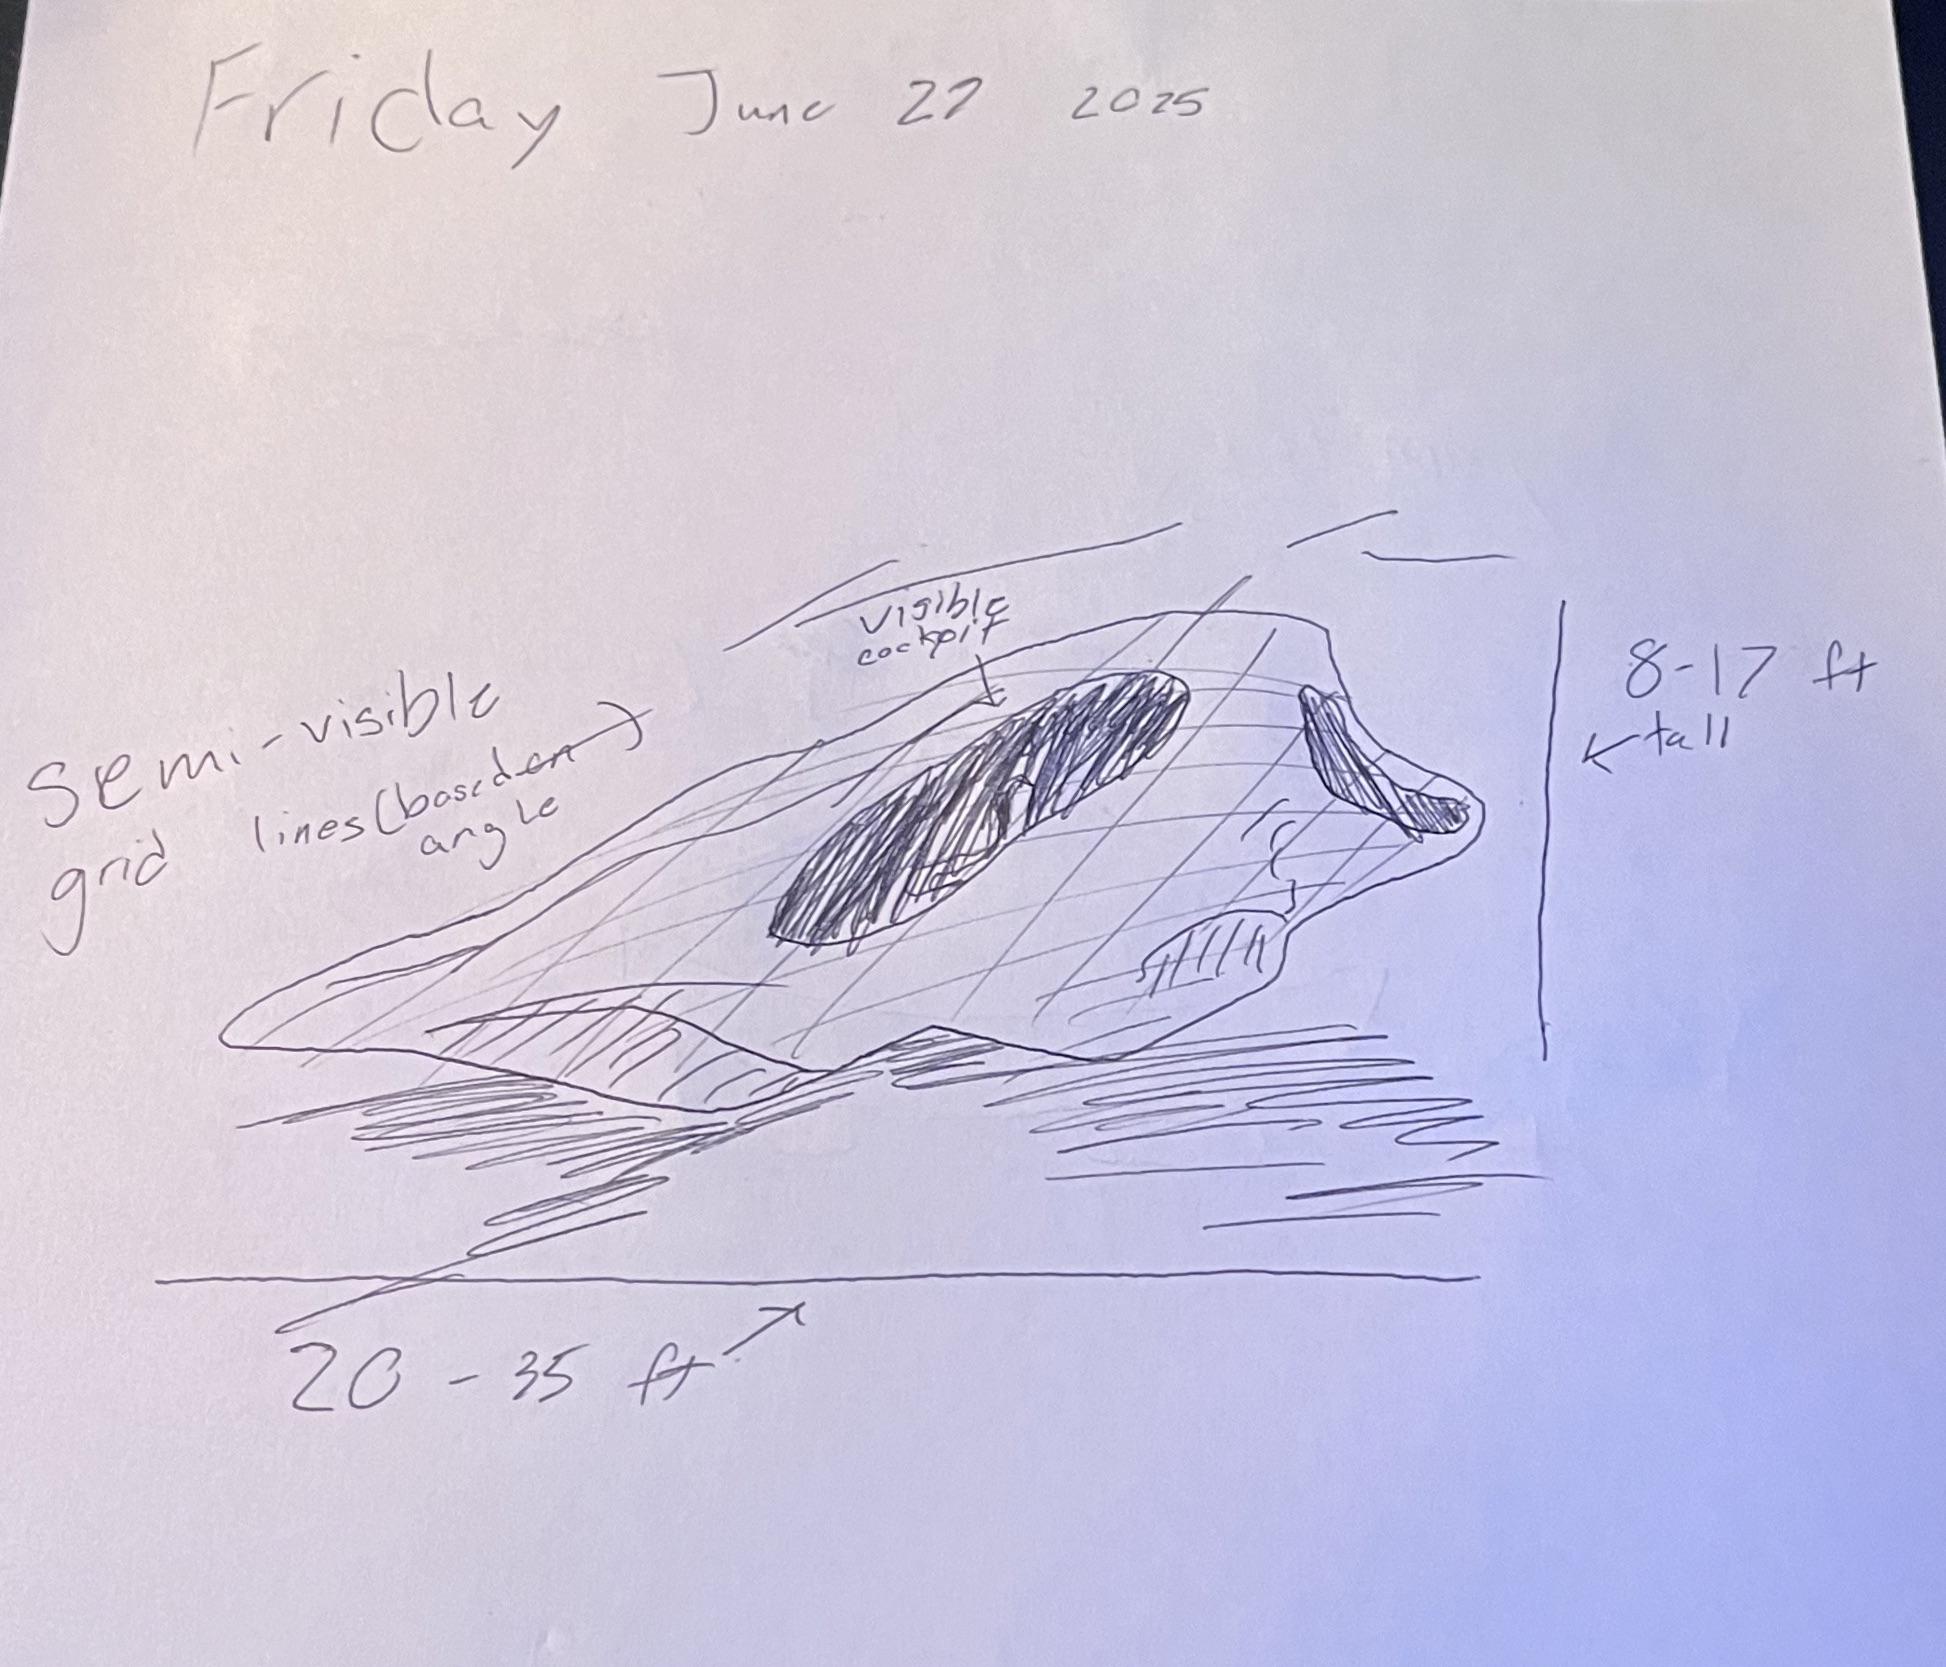 Friday June 27 2025
visible
cockpit
semi-visible
grid lines (based on
angle
8-17 ft
tall
20 - 35 ft